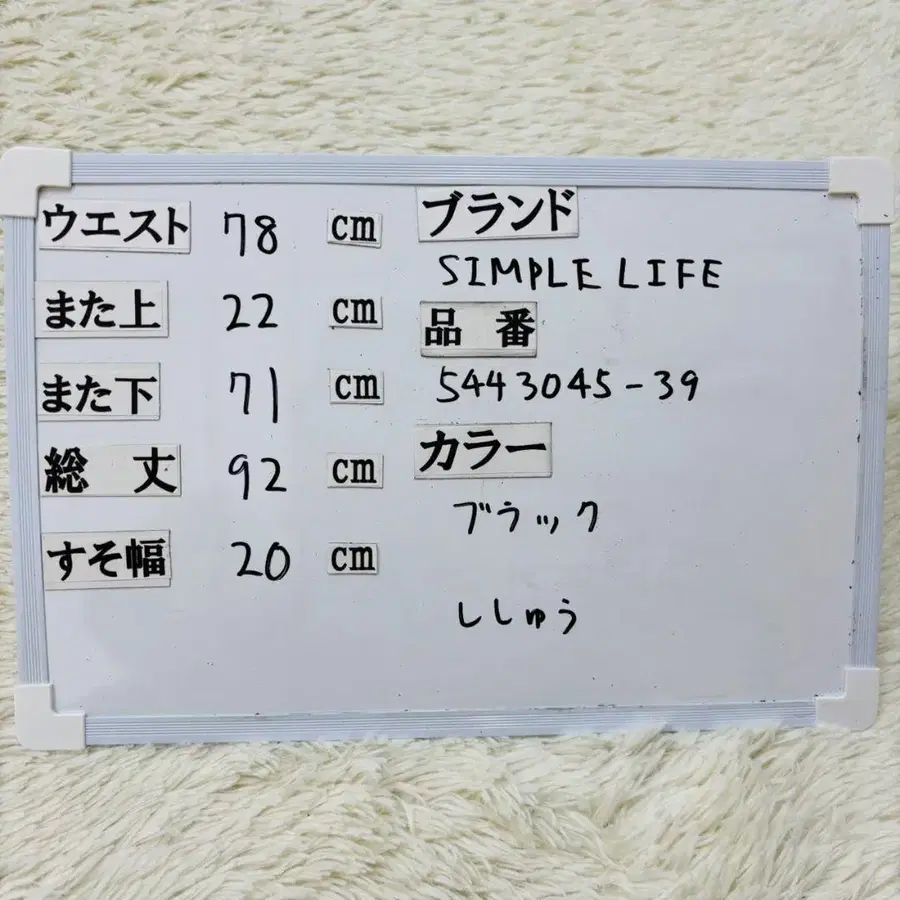 ウエスト 78 cm
また上 22 cm
また下 71 cm
総丈 92 cm
すそ幅 20 cm
ブランド
SIMPLE LIFE
品番
5443045-39
カラー
ブラック
ししゅう